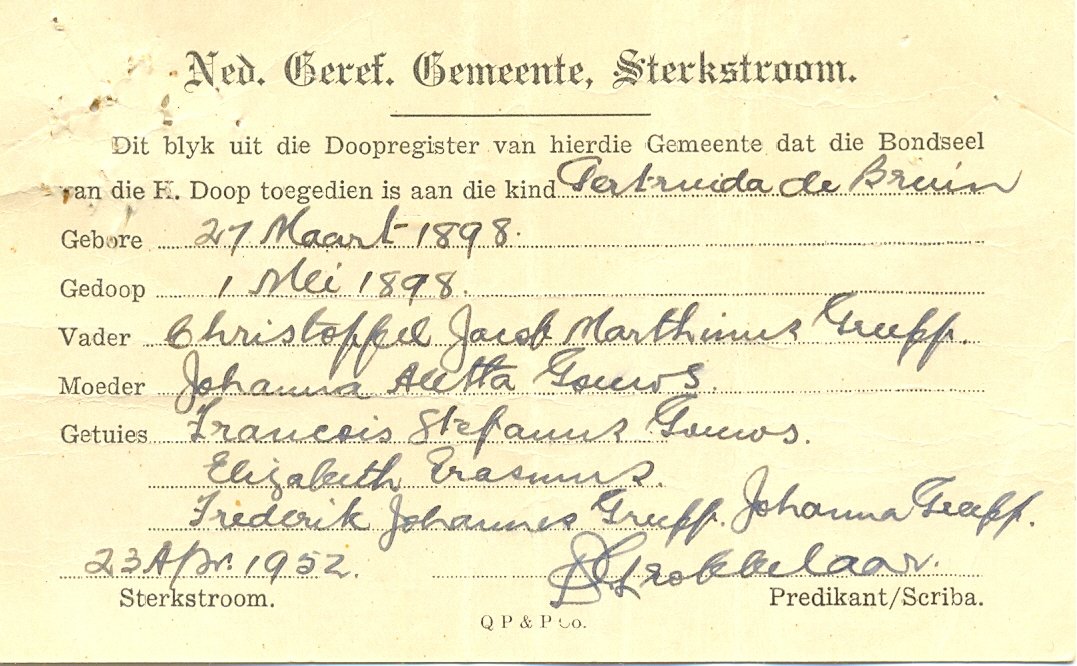 Ned. Geref. Gemeente, Sterkstroom.
Dit blyk uit die Doopregister van hierdie Gemeente dat die Bondseel
van die H. Doop toegedien is aan die kind Gertruida de Bruin
Gebore 27 Maart 1898.
Gedoop 1 Mei 1898.
Vader Christoffel Jacob Marthinus Greeff.
Moeder Johanna Aletta Gouws.
Getuies Francois Stefanus Gouws.
Elizabeth Erasmus.
Frederik Johannes Greeff. Johanna Greeff.
23 Apr. 1952. Grobbelaar.
Sterkstroom. Predikant/Scriba.
Q P & P Co.